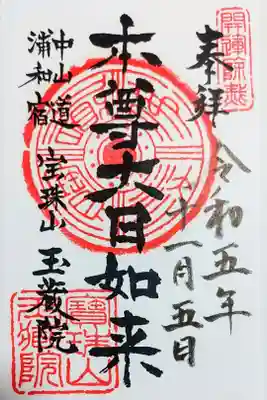 開運除災
奉拝
令和五年
十一月五日
本尊大日如来
中山道
浦和宿
宝珠山
玉蔵院
寶珠山
玉蔵院